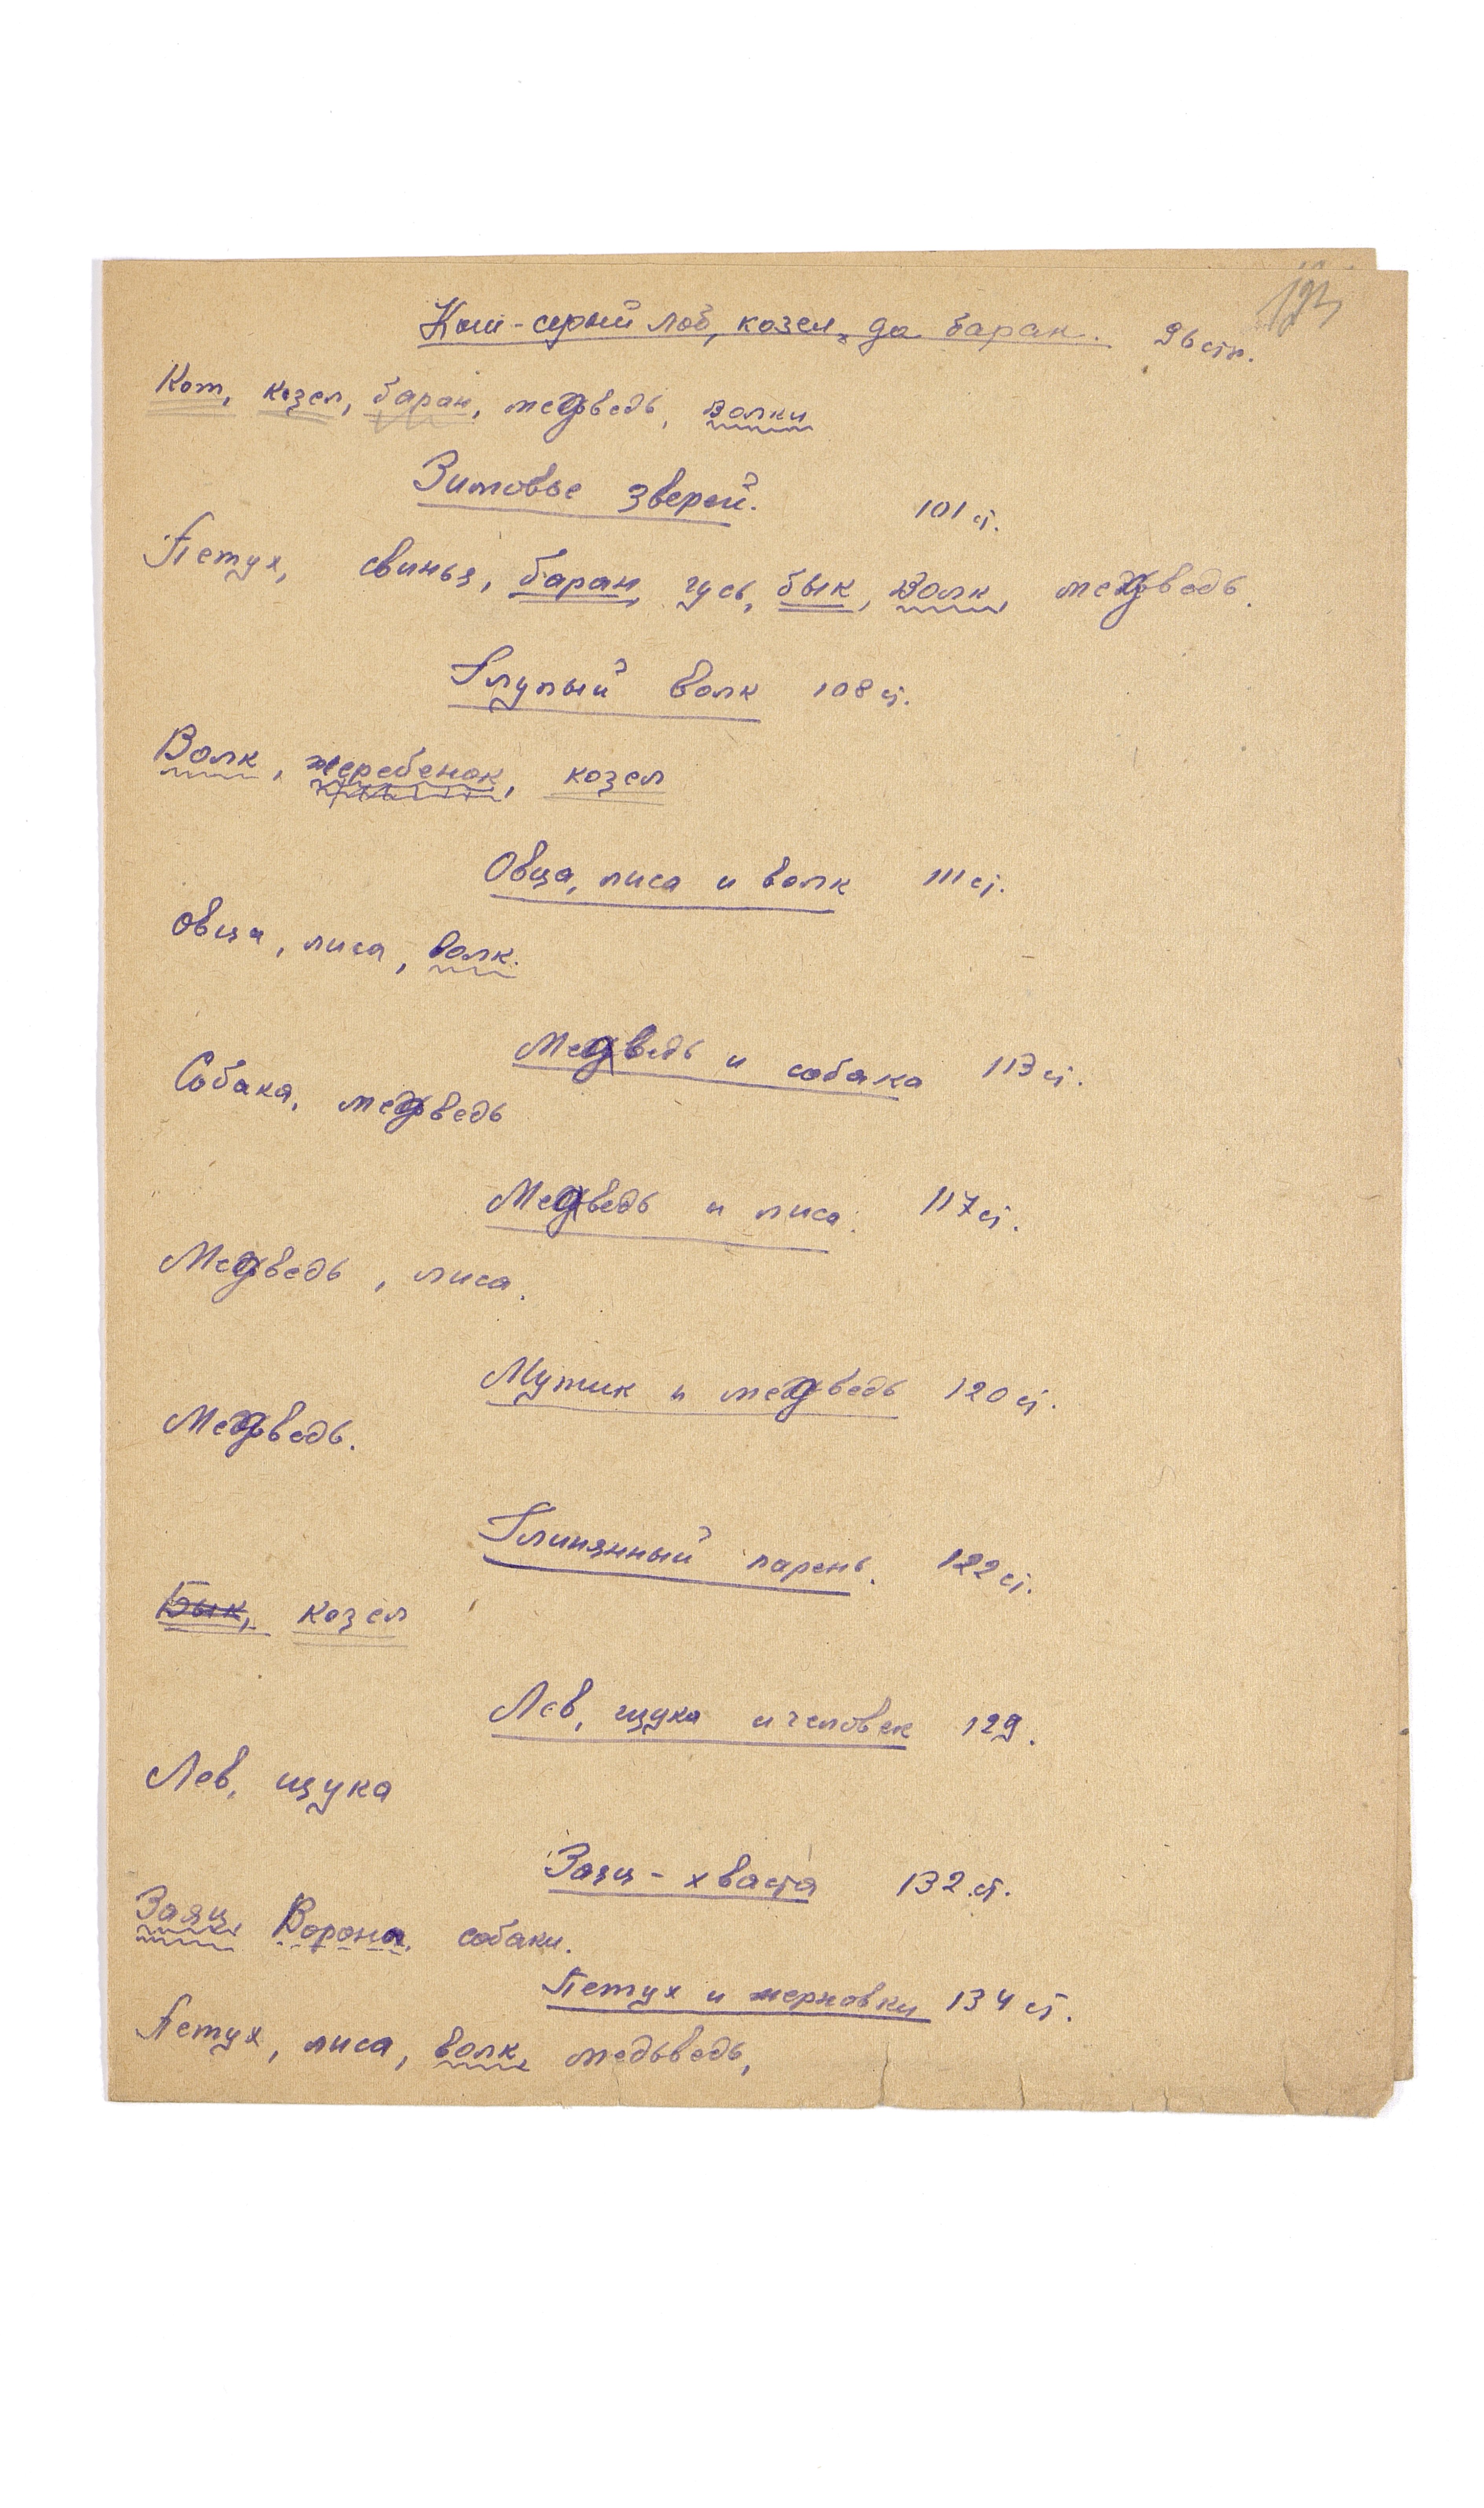 Кот-серый лоб, козел, да баран. 96 стр.
Кот, козел, баран, медведь, волки
Зимовье зверей. 101 ст.
Петух, свинья, баран, гусь, бык, волк, медведь.
Глупый волк 108 ст.
Волк, жеребенок, козел
Овца, лиса и волк 111 ст.
Овца, лиса, волк.
Медведь и собака 113 ст.
Собака, медведь
Медведь и лиса. 117 ст.
Медведь, лиса.
Мужик и медведь 120 ст.
Медведь.
Глинянный парень. 122 ст.
Бык, козел
Лев, щука и человек 129.
Лев, щука
Заяц-хваста 132 ст.
Заяц, Ворона, собаки.
Петух и жерновки 134 ст.
Петух, лиса, волк, медьведь,